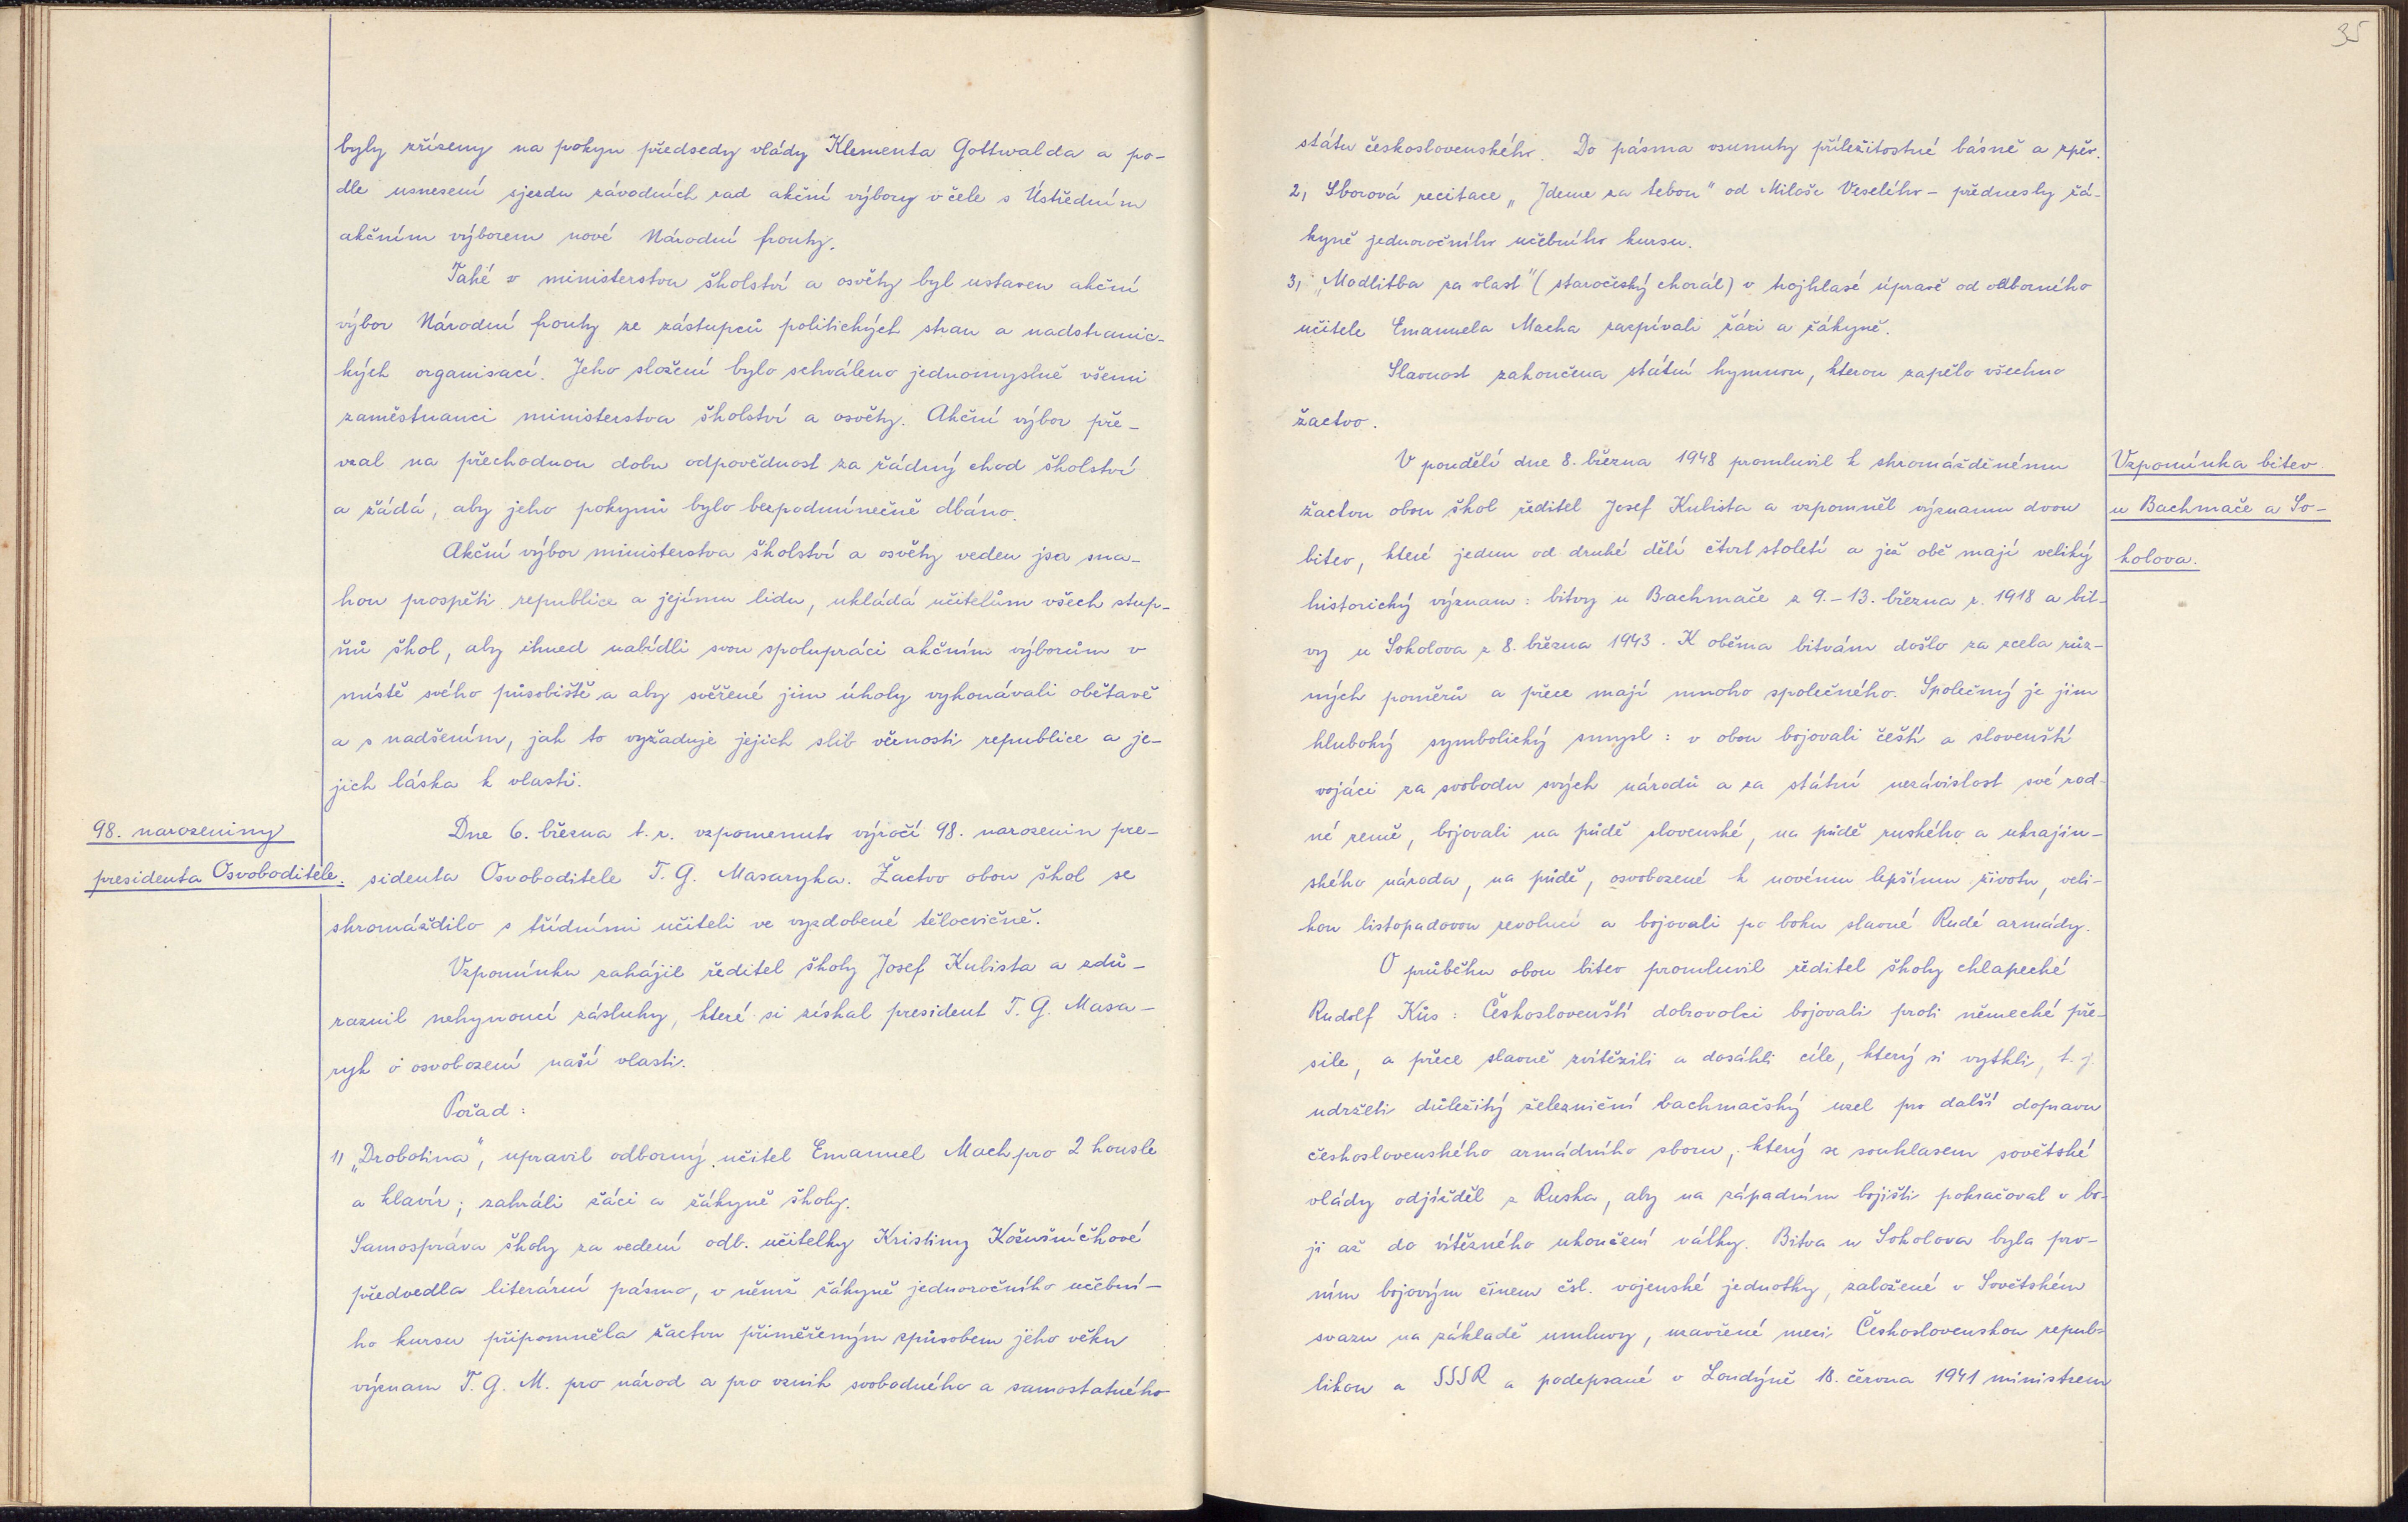 byly zřízeny na pokyn předsedy vlády Klementa Gottwalda a po-
dle usnesení sjezdu závodních rad akční výbory v čele s Ústředním
akčním výborem nové Národní fronty.
Také v ministerstvu školství a osvěty byl ustaven akční
výbor Národní fronty ze zástupců politických stran a nadstranic-
kých organisací. Jeho složení bylo schváleno jednomyslně všemi
zaměstnanci ministerstva školství a osvěty. Akční výbor pře-
vzal na přechodnou dobu odpovědnost za řádný chod školství
a žádá, aby jeho pokynů bylo bezpodmínečně dbáno.
Akční výbor ministerstva školství a osvěty veden jsa sna-
hou prospěti republice a jejímu lidu, ukládá učitelům všech stup-
ňů škol, aby ihned nabídli svou spolupráci akčním výborům v
místě svého působiště a aby svěřené jim úkoly vykonávali obětavě
a s nadšením, jak to vyžaduje jejich slib věrnosti republice a je-
jich láska k vlasti.
98. narozeniny
presidenta Osvoboditele.
Dne 6. března t. r. vzpomenuto výročí 98. narozenin pre-
sidenta Osvoboditele T. G. Masaryka. Žactvo obou škol se
shromáždilo s třídními učiteli ve vyzdobené tělocvičně.
Vzpomínku zahájil ředitel školy Josef Kubista a zdů-
raznil nehynoucí zásluhy, které si získal president T. G. Masa-
ryk o osvobození naší vlasti.
Pořad:
1) „Drobotina“, upravil odborný učitel Emanuel Mach pro 2 housle
a klavír; zahráli žáci a žákyně školy.
Samospráva školy za vedení odb. učitelky Kristiny Košušníčkové
předvedla literární pásmo, v němž žákyně jednoročního učební-
ho kursu připomněla žactvu přiměřeným způsobem jeho věku
význam T. G. M. pro národ a pro vznik svobodného a samostatného
35
státu československého. Do pásma vsunuty příležitostné básně a zpěv.
2, Sborová recitace „Jdeme za tebou“ od Miloše Veselého – přednesly žá-
kyně jednoročního učebního kursu.
3, „Modlitba za vlast“ (staročeský chorál) v trojhlasé úpravě od odborného
učitele Emanuela Macha zazpívali žáci a žákyně.
Slavnost zakončena státní hymnou, kterou zapělo všechno
žactvo.
Vzpomínka bitev
u Bachmače a So-
kolova.
V pondělí dne 8. března 1948 promluvil k shromážděnému
žactvu obou škol ředitel Josef Kubista a vzpomněl významu dvou
bitev, které jednu od druhé dělí čtvrt století a jež obě mají veliký
historický význam: bitvy u Bachmače z 9.–13. března r. 1918 a bit-
vy u Sokolova z 8. března 1943. K oběma bitvám došlo za zcela růz-
ných poměrů a přece mají mnoho společného. Společný je jim
hluboký symbolický smysl: v obou bojovali čeští a slovenští
vojáci za svobodu svých národů a za státní nezávislost své rod-
né země, bojovali na půdě slovenské, na půdě ruského a ukrajin-
ského národa, na půdě, osvobozené k novému lepšímu životu, veli-
kou listopadovou revolucí a bojovali po boku slavné Rudé armády.
O průběhu obou bitev promluvil ředitel školy chlapecké
Rudolf Kůs: Českoslovenští dobrovolci bojovali proti německé pře-
sile, a přece slavně zvítězili a dosáhli cíle, který si vytkli, t. j.
udrželi důležitý železniční bachmačský uzel pro další dopravu
československého armádního sboru, který se souhlasem sovětské
vlády odjížděl z Ruska, aby na západním bojišti pokračoval v bo-
ji až do vítězného ukončení války. Bitva u Sokolova byla prv-
ním bojovým činem čsl. vojenské jednotky, založené v Sovětském
svazu na základě umluvy, uzavřené mezi Československou repub-
likou a SSSR a podepsané v Londýně 18. června 1941 ministrem